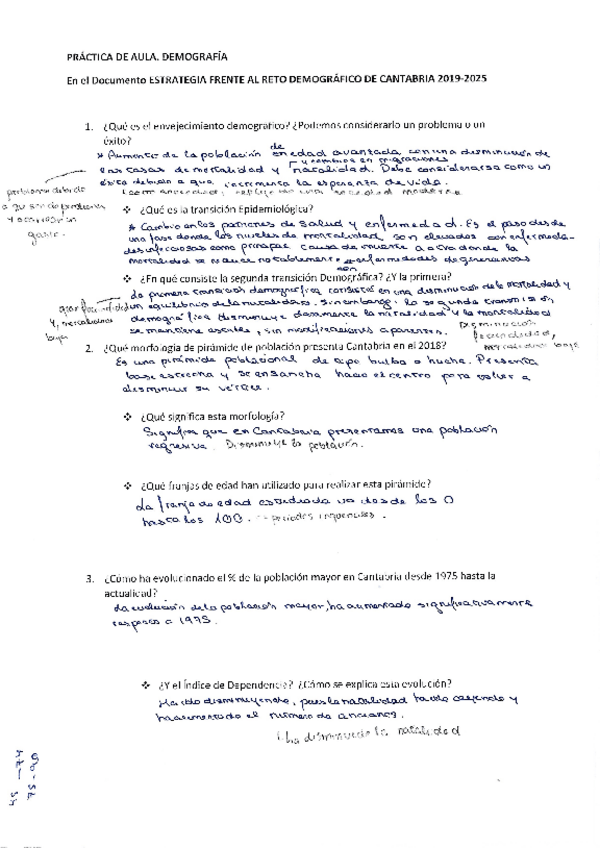 PRÁCTICA DE AULA. DEMOGRAFÍA
En el Documento ESTRATEGIA FRENTE AL RETO DEMOGRÁFICO DE CANTABRIA 2019-2025
1. ¿Qué es el envejecimiento demográfico? ¿Podemos considerarlo un problema o un
éxito?
* Aumento de la población de edad avanzada, con una disminución de
las tasas de mortalidad y natalidad. Debe considerarse como un
y cambios en migraciones
éxito debido a que, incrementa la esperanza de vida.
problema debido
gasto.
❖ ¿Qué es la transición Epidemiológica?
* Cambio en los patrones de salud y enfermedad. Es el paso desde
una fase donde los niveles de mortalidad son elevados con enfermeda-
des infecciosas como principal causa de muerte a otra donde la
mortalidad se reduce notablemente
son
enfermedades degenerativas
❖ ¿En qué consiste la segunda transición Demográfica? ¿Y la primera?
La primera transición demográfica consiste en una disminución de la mortalidad y
un equilibrio de la natalidad. Sin embargo, la segunda transición
demográfica disminuye claramente la natalidad y la mortalidad
se mantiene estable, sin modificaciones aparentes.
Disminución
fecundidad,
mortalidad baja
2. ¿Qué morfología de pirámide de población presenta Cantabria en el 2018?
Es una pirámide poblacional de tipo bulbo o hucha. Presenta
base estrecha y se ensancha hacia el centro para volver a
disminuir su vértice.
❖ ¿Qué significa esta morfología?
Significa que en Cantabria presentamos una población
regresiva. Disminuye la población.
❖ ¿Qué franjas de edad han utilizado para realizar esta pirámide?
La franja de edad estudiada va desde los 0
hasta los 100.
3. ¿Cómo ha evolucionado el % de la población mayor en Cantabria desde 1975 hasta la
actualidad?
La evolución de la población mayor, ha aumentado significativamente
respecto a 1975.
❖ ¿Y el Índice de Dependencia? ¿Cómo se explica esta evolución?
Ha ido disminuyendo, pues la natalidad ha ido cayendo y
ha aumentado el número de ancianos.
ha disminuido la natalidad